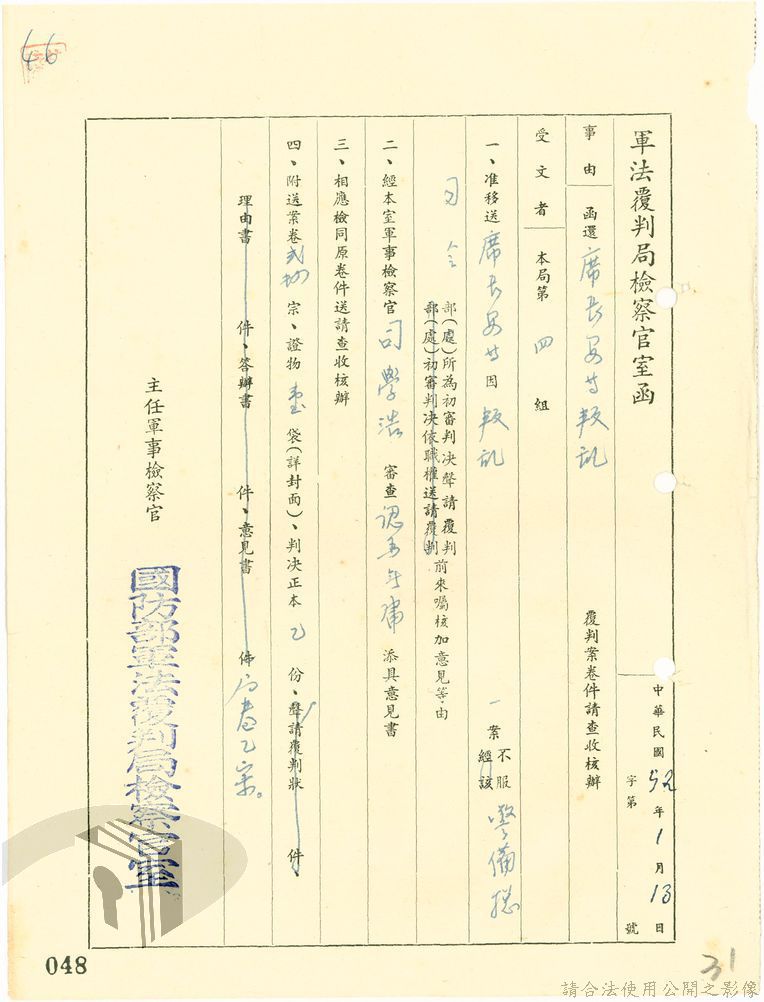 46
軍法覆判局檢察官室函
中華民國52年1月13日
字第 號
事由 函還席長安等叛乱 覆判案卷件請查收核辦
受文者 本局第四組
一、准移送席長安等因叛乱 一案 不服 經該 警備總
司令 部(處)所為初審判決聲請覆判 部(處)初審判決依職權送請覆判 前來囑核加意見等由
二、經本室軍事檢察官司學浩審查認 添具意見書
三、相應檢同原卷件送請查收核辦
四、附送案卷 宗、證物壹袋(詳封面)、判決正本乙份、聲請覆判狀 件、
理由書 件、答辯書 件、意見書 件
主任軍事檢察官
國防部軍法覆判局檢察官室
048
31
請合法使用公開之影像